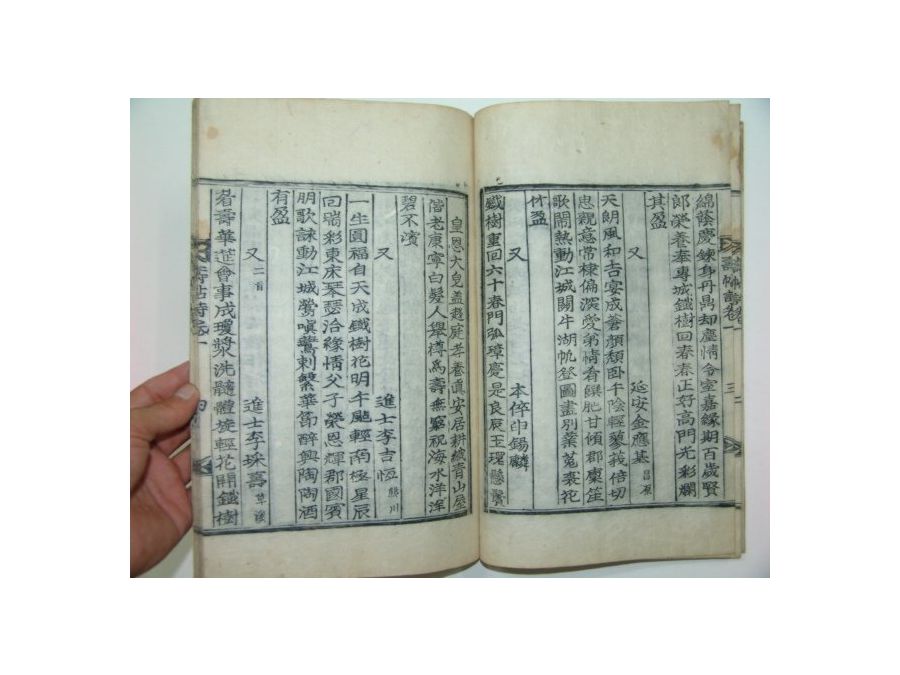 綿藤慶鍊身丹鼎却塵情令室嘉緣期百歲賢
郎榮養奉專城鐵樹回春春正好高門光彩爛
其盈
又 延安金應基
天朗風和吉宴成蒼顔頹卧午陰輕蓼莪倍切
思親意常棣偏深愛弟情香饌肥甘傾郡廩笙
歌鬧熱動江城關牛湖帆登圖畫別業菟裘花
竹盈
又 本倅印錫麟
鐵樹重回六十春門弘璋慶是良辰玉環懸
皇恩大皃盖趨庭孝養眞安居耕綠青山屋
偕老康寧白髮人擧樽爲壽無窮祝海水洋洋
碧不濱
又 進士李吉恒 熊川
一生圓福自天成鐵樹花明午颸輕南極星辰
回瑞彩東床琴瑟洽緣情父子榮恩輝郡國賓
朋歌誄動江城鶯嗔鷰刺繁華節醉興陶陶酒
有盈
又 二首 進士李琛壽
耉壽華莚會事成瓊漿洗髓體旋輕花開鐵樹